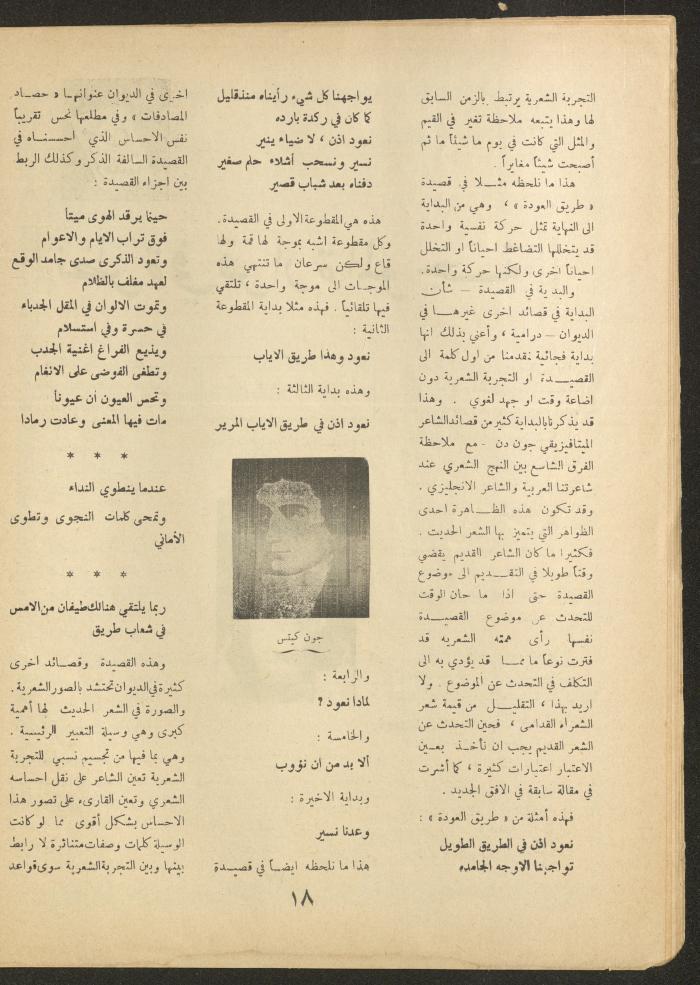 التجربة الشعرية يرتبط بالزمن السابق
لها وهذا يتبعه ملاحظة تغير في القيم
والمثل التي كانت في يوم ما شيئاً ما ثم
أصبحت شيئاً مغايراً .
هذا ما نلحظه مثـلا في قصيدة
« طريق العودة » ، وهي من البداية
الى النهاية تمثل حركة نفسية واحدة
قد يتخللها التضاغط احياناً او التخلل
احياناً اخرى ولكنها حركة واحدة.
والبدية في القصيدة – شأن
البداية في قصائد اخرى غيرهـا في
الديوان – درامية ، وأعني بذلك انها
بداية فجائية تقدمنا من اول كلمة الى
القصيـدة او التجربة الشعرية دون
اضاعة وقت او جهد لغوي . وهذا
قد يذكرنا بالبداية كثير من قصائد الشاعر
الميتافيزيقي جون دن - مع ملاحظة
الفرق الشاسع بين النهج الشعري عند
شاعرتنا العربية والشاعر الانجليزي .
وقد تكون هذه الظـاهرة احدى
الظواهر التي يتميز بها الشعر الحديث .
فكثيرا ما كان الشاعر القديم يقضي
وقتاً طويلا في التقـديم الى موضوع
القصيدة حتى اذا ما حان الوقت
للتحدث عن موضوع القصيـدة
نفسها رأى همته الشعريه قد
فترت نوعاً ما ممـا قد يؤدي به الى
التكلف في التحدث عن الموضوع . ولا
اريد بهذا ، التقليـل من قيمة شعر
الشعراء القدامى ، فحين التحدث عن
الشعر القديم يجب ان نأخـذ بعـين
الاعتبار اعتبارات كثيرة ، كما أشرت
في مقالة سابقة في الافق الجديد .
فهذه أمثلة من « طريق العودة » :
نعود اذن في الطريق الطويل
تواجهنا الاوجه الجامده
يواجهنا كل شيء رأيناه منذ قليل
كما كان في ركدة بارده
نعود اذن ، لا ضياء ينير
نسير ونسحب أشلاء حلم صغير
دفناه بعد شباب قصير
هذه هي المقطوعة الاولى في القصيدة.
وكل مقطوعة اشبه بموجة لها قمة ولها
قاع ولكن سرعان ما تنتهي هذه
الموجـات الى موجة واحدة ، تلتقي
فيها تلقائياً . فهذه مثلا بداية المقطوعة
الثانية :
نعود وهذا طريق الاياب
وهذه بداية الثالثة :
نعود اذن في طريق الاياب المرير
جون كيتس
والرابعة :
لماذا نعود ؟
والخامسة :
ألا بد من ان نؤوب
وبداية الاخيرة :
وعدنا نسير
هذا ما نلحظه ايضـاً في قصيـدة
اخرى في الديوان عنوانهـا « حصـاد
المصادفات » وفي مطلعها نحس تقريباً
نفس الاحساس الذي احسسنـاه في
القصيدة السالفة الذكر وكذلك الربط
بين اجزاء القصيدة :
حينما يرقد الهوى ميتا
فوق تراب الايام والاعوام
وتعود الذكرى صدى جامد الوقع
لعهد مغلف بالظلام
وتموت الالوان في المقل الجدباء
في حسرة وفي استسلام
ويذيع الفراغ اغنية الجدب
وتطغى الفوضى على الانغام
وتحس العيون ان عيوناً
مات فيها المعنى وعادت رمادا
* * *
عندما ينطوي النداء
وتمحى كلمات النجوى وتطوى
الأماني
* * *
ربما يلتقي هنالك طيفان من الامس
في شعاب طريق
وهذه القصيدة وقصـائد اخرى
كثيرة في الديوان تحتشد بالصور الشعرية .
والصورة في الشعر الحديث لها أهمية
كبرى وهي وسيلة التعبير الرئيسية .
وهي بما فيها من تجسيم نسبي للتجربة
الشعرية تعين الشاعر على نقل احساسه
الشعري وتعين القارىء على تصور هذا
الاحساس بشكل أقوى مما لو كانت
الوسيلة كلمات وصفات متناثرة لا رابط
بينها وبين التجربة الشعرية سوى قواعد
١٨